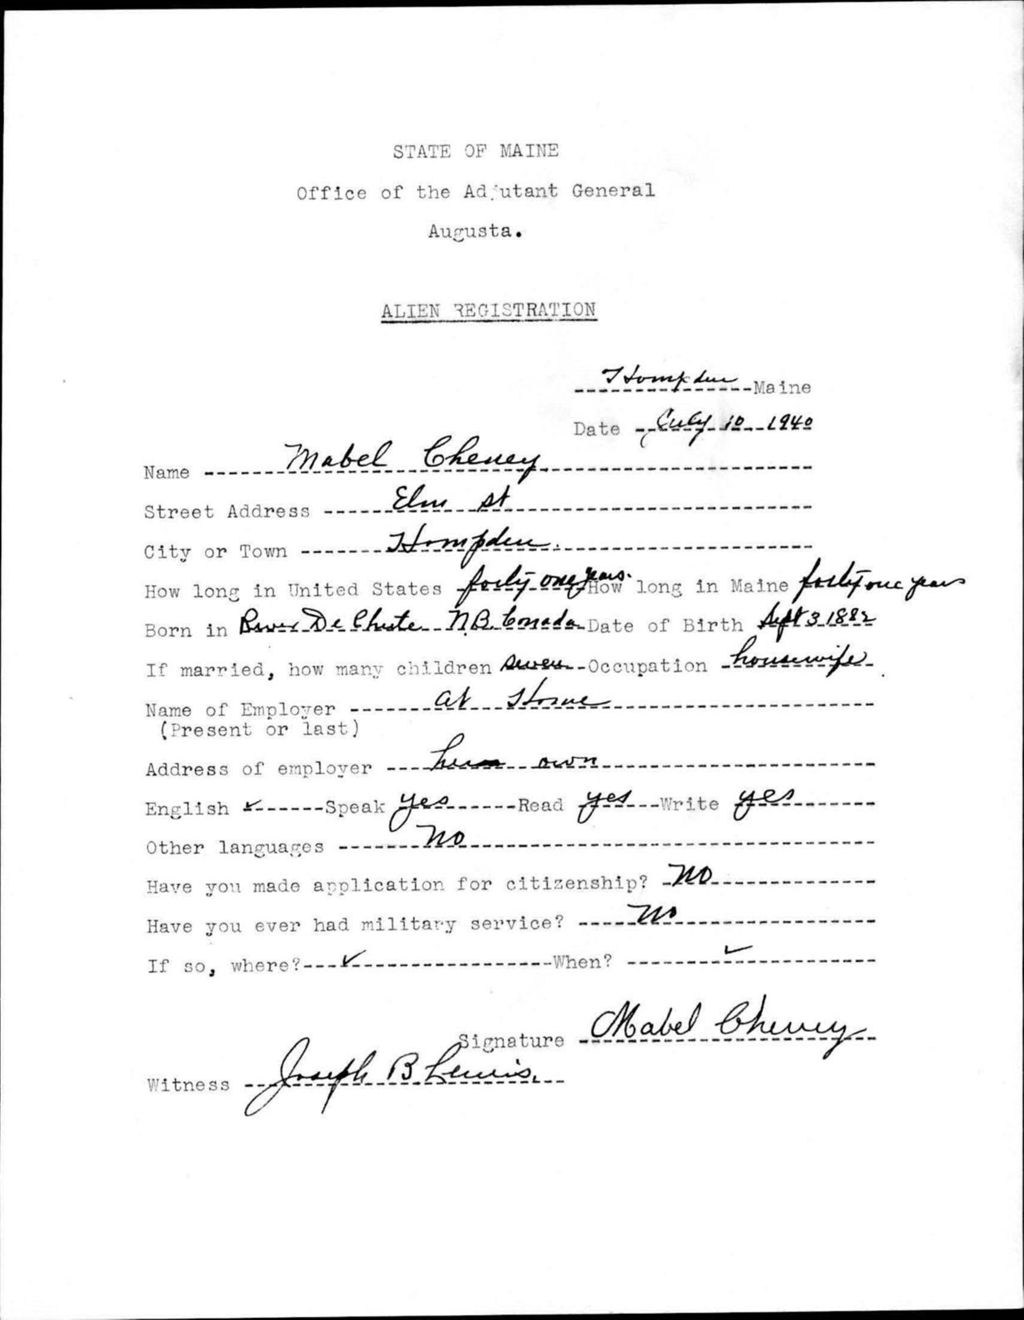 STATE OF MAINE
Office of the Adjutant General
Augusta.
ALIEN REGISTRATION
Hampden Maine
Date July 10 1940
Name Mabel Cheney
Street Address Elm st
City or Town Hampden.
How long in United States forty one years. How long in Maine forty one years
Born in River De Chute N.B. Canada Date of Birth Sept 3 1882
If married, how many children seven Occupation housewife
Name of Employer at Home
(Present or last)
Address of employer own
English ✓ Speak yes Read yes Write yes
Other languages no
Have you made application for citizenship? No
Have you ever had military service? no
If so, where? ✓ When? ✓
Signature Mabel Cheney
Witness Joseph B Lewis.